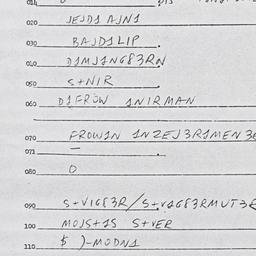 020 JEJD1 AJN1
030 BAJD1LIP.
040 D1MJ1NG83RN
050 S+NIR
060 D1FROW 1NIRMAN
070 FROW1N 1NZEJ3R1MEN
071
080 0
090 S+VIG83R/S+V1G83RMUT3R
100 MOJS+1S S+VER
110 $ )-MODN1